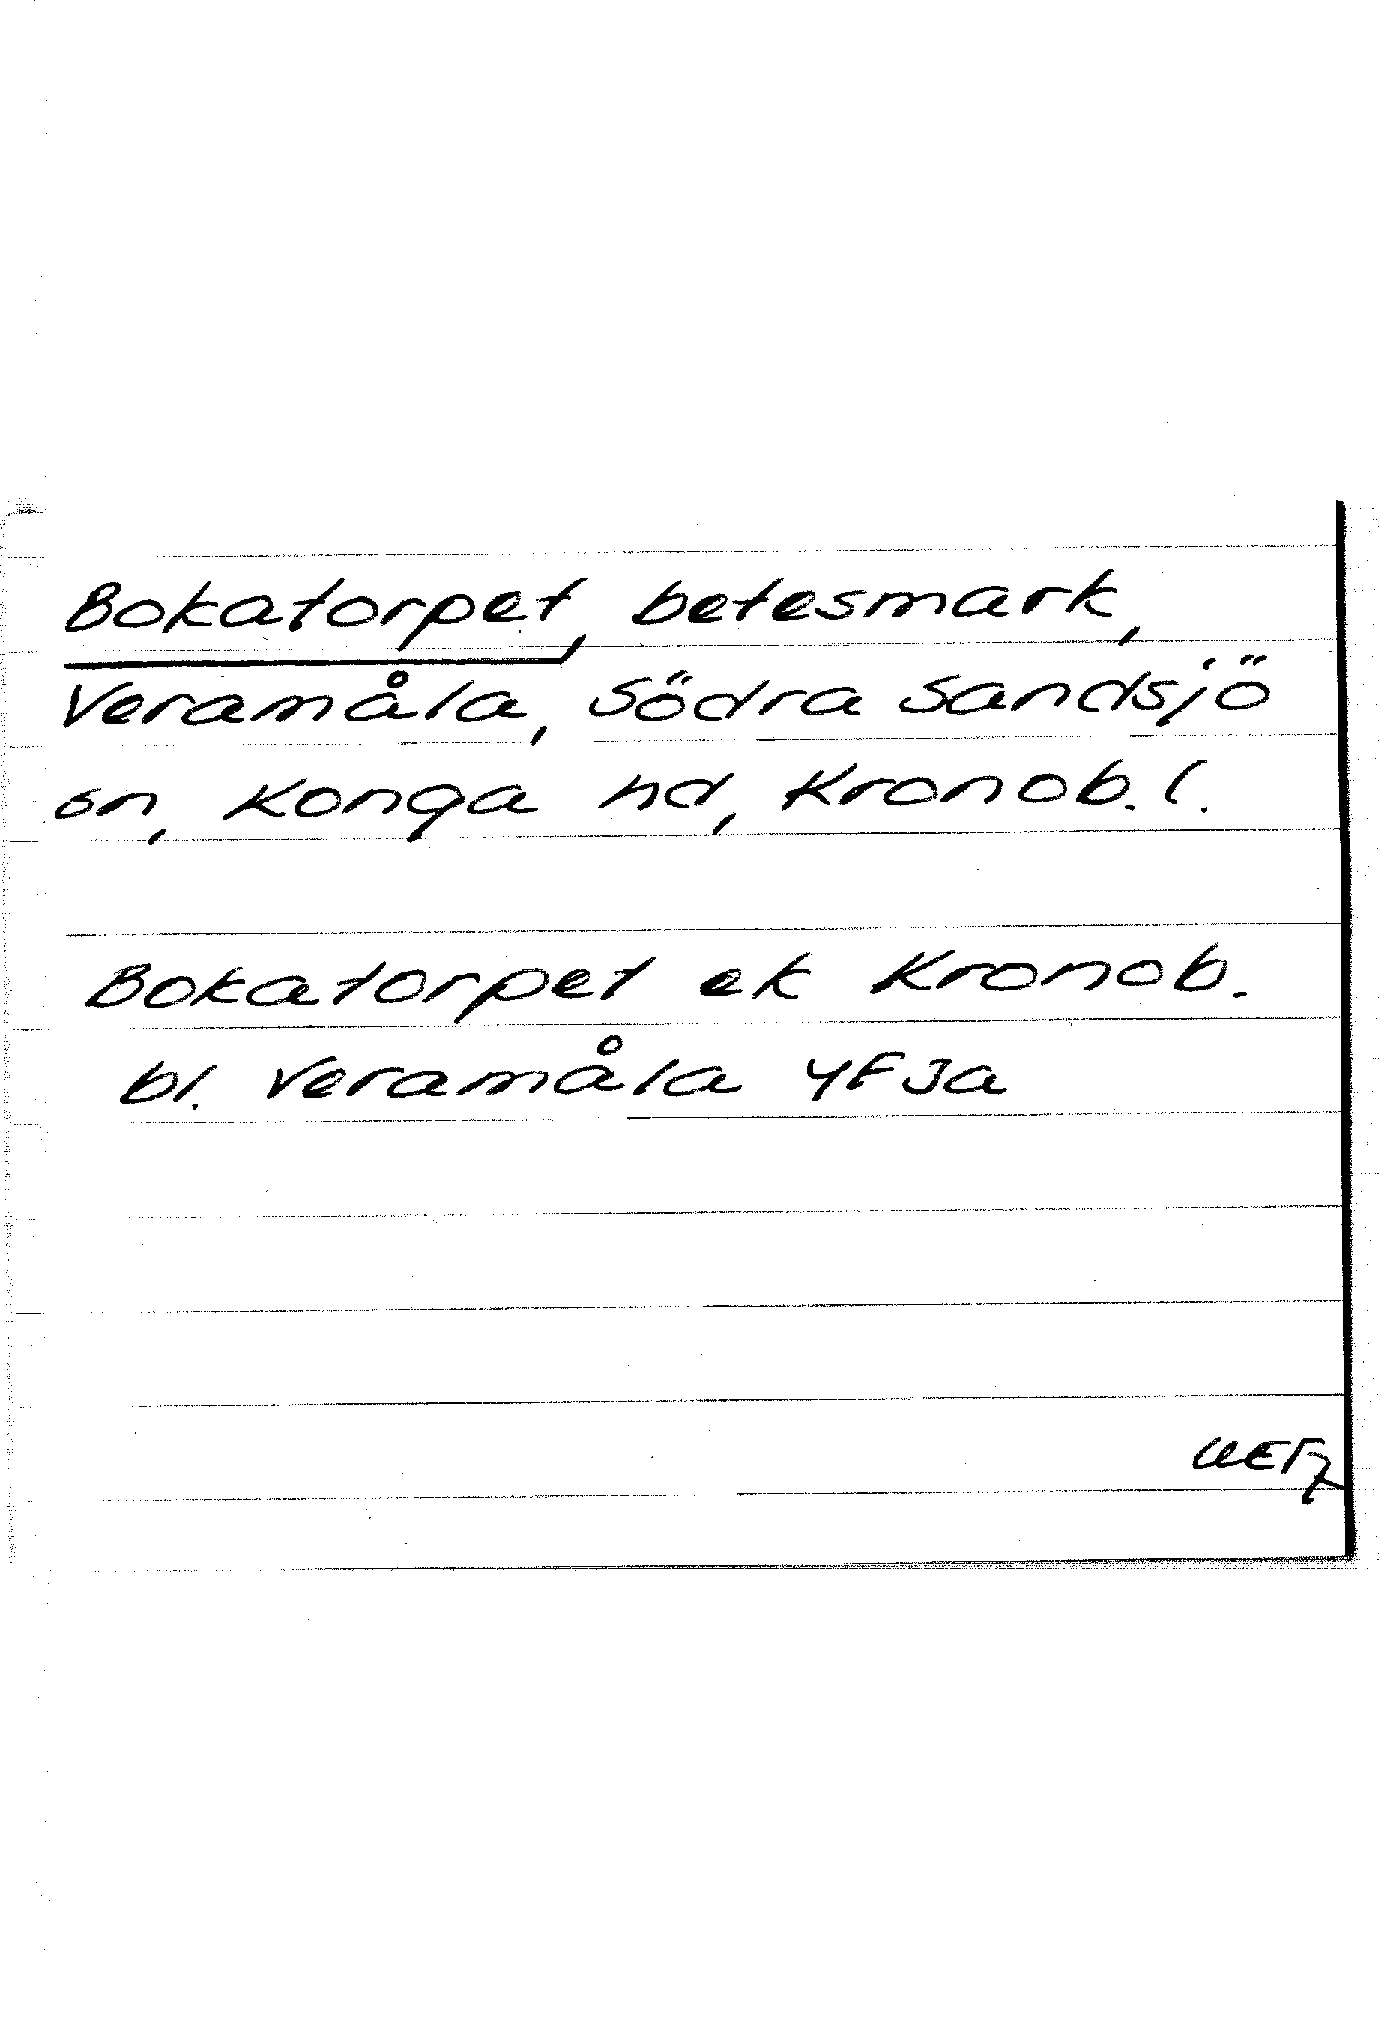 Bokatorpet, betesmark,
Veramåla, Södra Sandsjö
sn, Konga hd, Kronob. l.
Bokatorpet ek Kronob.
bl. Veramåla 4F3a